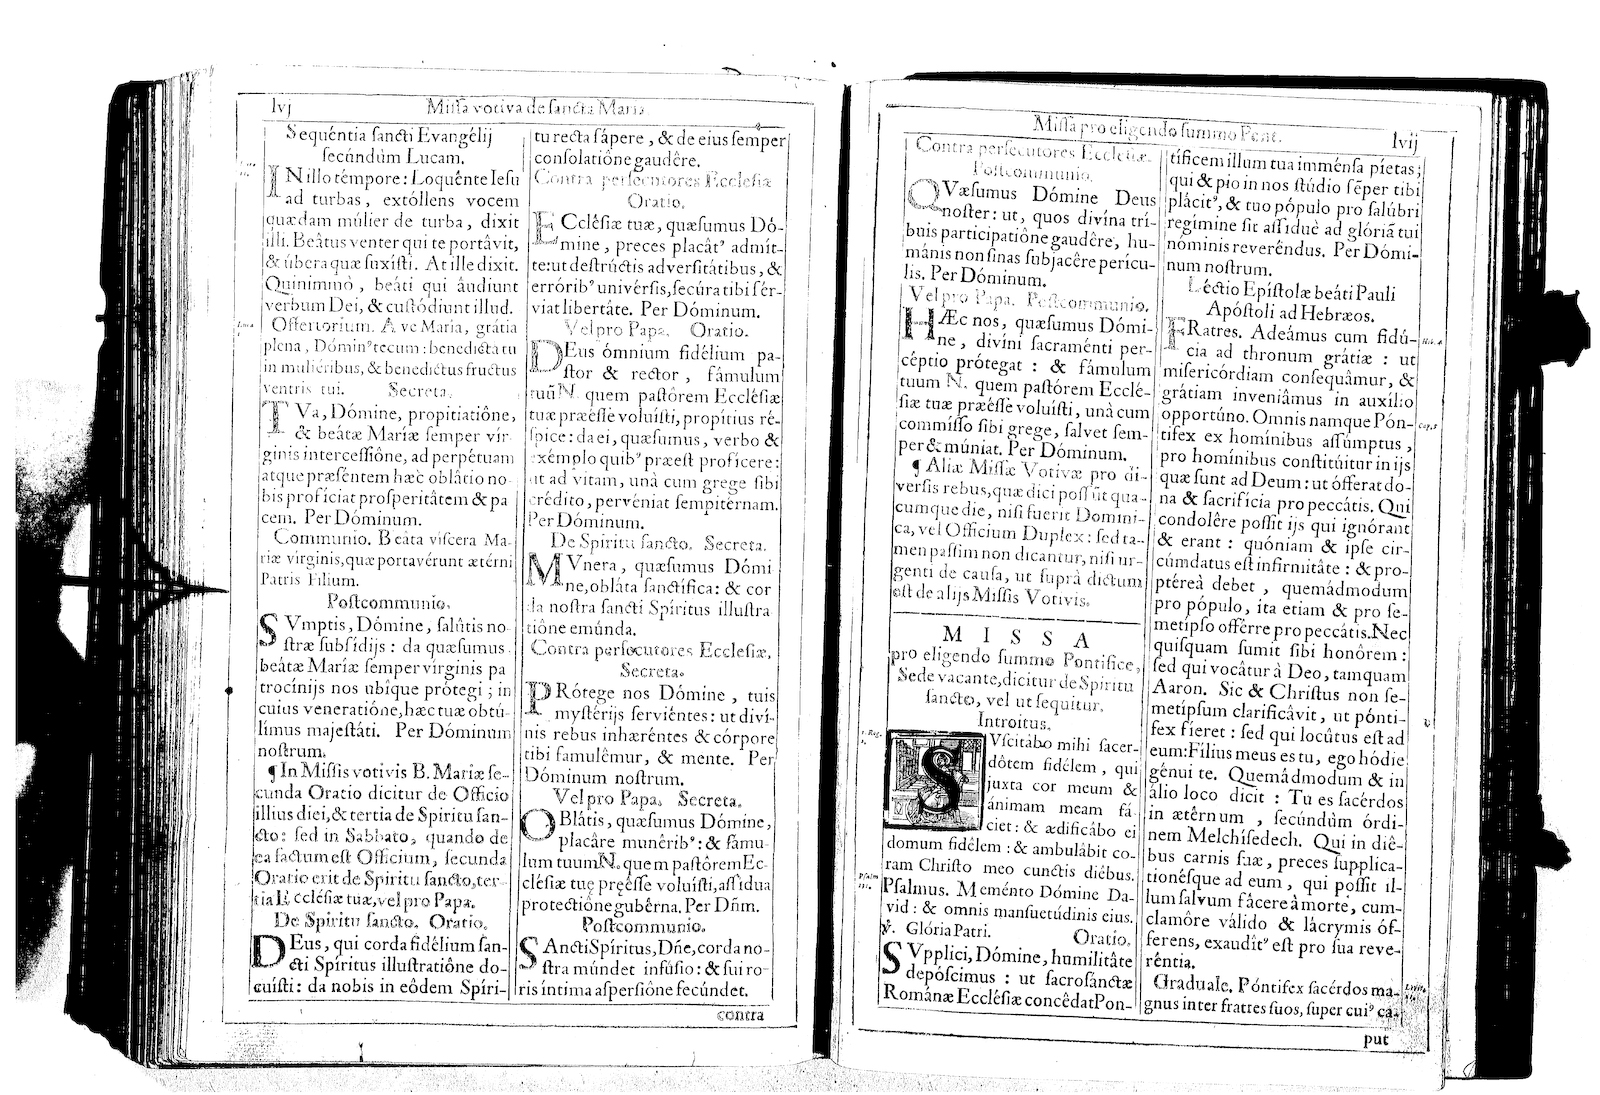 lvj
Missa votiva de sancta Maria.
Sequéntia sancti Evangélij
secúndùm Lucam.
IN illo témpore: Loquénte Iesu
ad turbas, extóllens vocem
quædam múlier de turba, dixit
illi. Beâtus venter qui te portâvit,
& úbera quæ suxísti. At ille dixit.
Quinimìnò, beáti qui áudiunt
verbum Dei, & custódiunt illud.
Offertorium. Ave María, grátia
plena, Dóminꝰ tecum: benedícta tu
in muliéribus, & benedíctus fructus
ventris tui. Secreta.
TVa, Dómine, propitiatiône,
& beátæ Maríæ semper vír-
ginis intercessiône, ad perpétuam
atque præséntem hæc oblátio no-
bis proficiat prosperitâtem & pa
cem. Per Dóminum.
Communio. Beáta víscera Ma-
riæ vírginis, quæ portavérunt ætérni
Patris Fílium.
Postcommunio.
SVmptis, Dómine, salûtis no-
stræ subsídijs: da quæsumus
beátæ Maríæ semper vírginis pa
trocínijs nos ubíque prótegi; in
cuius veneratióne, hæc tuæ obtú-
limus majestáti. Per Dóminum
nostrum.
¶ In Missis votivis B. Mariæ se-
cunda Oratio dicitur de Officio
illius diei, & tertia de Spiritu san-
cto: sed in Sabbato, quando de
ea factum est Officium, secunda
Oratio erit de Spiritu sancto, ter-
tia Ecclésiæ tuæ, vel pro Papa.
De Spiritu sancto. Oratio.
DEus, qui corda fidélium san-
cti Spíritus illustratiône do-
cuísti: da nobis in eôdem Spíri-
tu recta sápere, & de eius semper
consolatiône gaudêre.
Contra persecutores Ecclesiæ
Oratio.
ECclésiæ tuæ, quæsumus Dó-
mine, preces placátꝰ admít-
te: ut destrúctis adversitátibus, &
erróribꝰ univérsis, secúra tibi sér-
viat libertáte. Per Dóminum.
Vel pro Papa. Oratio.
DEus ómnium fidélium pa-
stor & rector, fámulum
tuũ N. quem pastórem Ecclésiæ
tuæ præésse voluísti, propítius ré-
spice: da ei, quæsumus, verbo &
exémplo quibꝰ præest profícere:
ut ad vitam, unà cum grege sibi
crédito, pervéniat sempitérnam.
Per Dóminum.
De Spiritu sancto. Secreta.
MVnera, quæsumus Dómi
ne, obláta sanctífica: & cor
da nostra sancti Spíritus illustra
tiône emúnda.
Contra persecutores Ecclesiæ.
Secreta.
PRótege nos Dómine, tuis
mystérijs serviéntes: ut diví-
nis rebus inhæréntes & córpore
tibi famulêmur, & mente. Per
Dóminum nostrum.
Vel pro Papa. Secreta.
OBlátis, quæsumus Dómine,
placâre munéribꝰ: & fámu-
lum tuum N. quem pastórem Ec-
clésiæ tuę pręésse voluísti, assídua
protectióne gubêrna. Per Dñm.
Postcommunio.
SAncti Spíritus, Dñe, corda no-
stra múndet infúsio: & sui ro-
ris íntima aspersiône fecúndet.
contra
Missa pro eligendo summo Pont.
lvij
Contra persecutores Ecclesiæ.
Postcommunio.
QVæsumus Dómine Deus
noster: ut, quos divína trí-
buis participatiône gaudêre, hu-
mánis non sinas subjacêre perícu-
lis. Per Dóminum.
Vel pro Papa. Postcommunio.
HÆc nos, quæsumus Dómi-
ne, divíni sacraménti per-
céptio prótegat: & fámulum
tuum N. quem pastórem Ecclé-
siæ tuæ præésse voluísti, unà cum
commísso sibi grege, salvet sem-
per & múniat. Per Dóminum.
¶ Aliæ Missæ Votivæ pro di-
versis rebus, quæ dici possũt qua-
cumque die, nisi fuerit Domini-
ca, vel Officium Duplex: sed ta-
men passim non dicantur, nisi ur-
genti de causa, ut suprà dictum
est de alijs Missis Votivis.
MISSA
pro eligendo summo Pontifice,
Sede vacante, dicitur de Spiritu
sancto, vel ut sequitur.
Introitus.
1. Reg.
SVscitábo mihi sacer-
dôtem fidélem, qui
juxta cor meum &
ánimam meam fá-
ciet: & ædificábo ei
domum fidélem: & ambulábit co-
ram Christo meo cunctis diébus.
Psalm
131.
Psalmus. Meménto Dómine Da-
vid: & omnis mansuetúdinis eius.
℣. Glória Patri. Oratio.
SVpplici, Dómine, humilitâte
depóscimus: ut sacrosánctæ
Románæ Ecclésiæ concêdat Pon-
tíficem illum tua imménsa píetas;
qui & pio in nos stúdio sêper tibi
plácitꝰ, & tuo pópulo pro salúbri
regímine sit assíduè ad glóriã tui
nóminis reveréndus. Per Dómi-
num nostrum.
Léctio Epístolæ beáti Pauli
Apóstoli ad Hebræos.
Heb. 4
FRatres. Adeámus cum fidú-
cia ad thronum grátiæ: ut
misericórdiam consequâmur, &
grátiam inveniâmus in auxílio
opportúno. Omnis namque Pón-
Cap. 5
tifex ex homínibus assúmptus,
pro homínibus constitúitur in ijs
quæ sunt ad Deum: ut ófferat do-
na & sacrifícia pro peccátis. Qui
condolêre possit ijs qui ignórant
& erant: quóniam & ipse cir-
cúmdatus est infirmitâte: & pro-
ptéreà debet, quemádmodum
pro pópulo, íta etiam & pro se-
metípso offérre pro peccátis. Nec
quísquam sumit sibi honôrem:
sed qui vocâtur à Deo, tamquam
Aaron. Sic & Christus non se-
metípsum clarificâvit, ut pónti-
fex fíeret: sed qui locûtus est ad
eum: Fílius meus es tu, ego hódie
génui te. Quemádmodum & in
álio loco dicit: Tu es sacérdos
in ætêrnum, secúndùm órdi-
nem Melchísedech. Qui in diê-
bus carnis suæ, preces supplica-
tionésque ad eum, qui possit il-
lum salvum fácere à morte, cum-
clamôre válido & lácrymis óf-
ferens, exaudítꝰ est pro sua reve-
réntia.
Graduale. Póntifex sacérdos ma-
gnus inter fratres suos, super cuiꝰ ca-
put